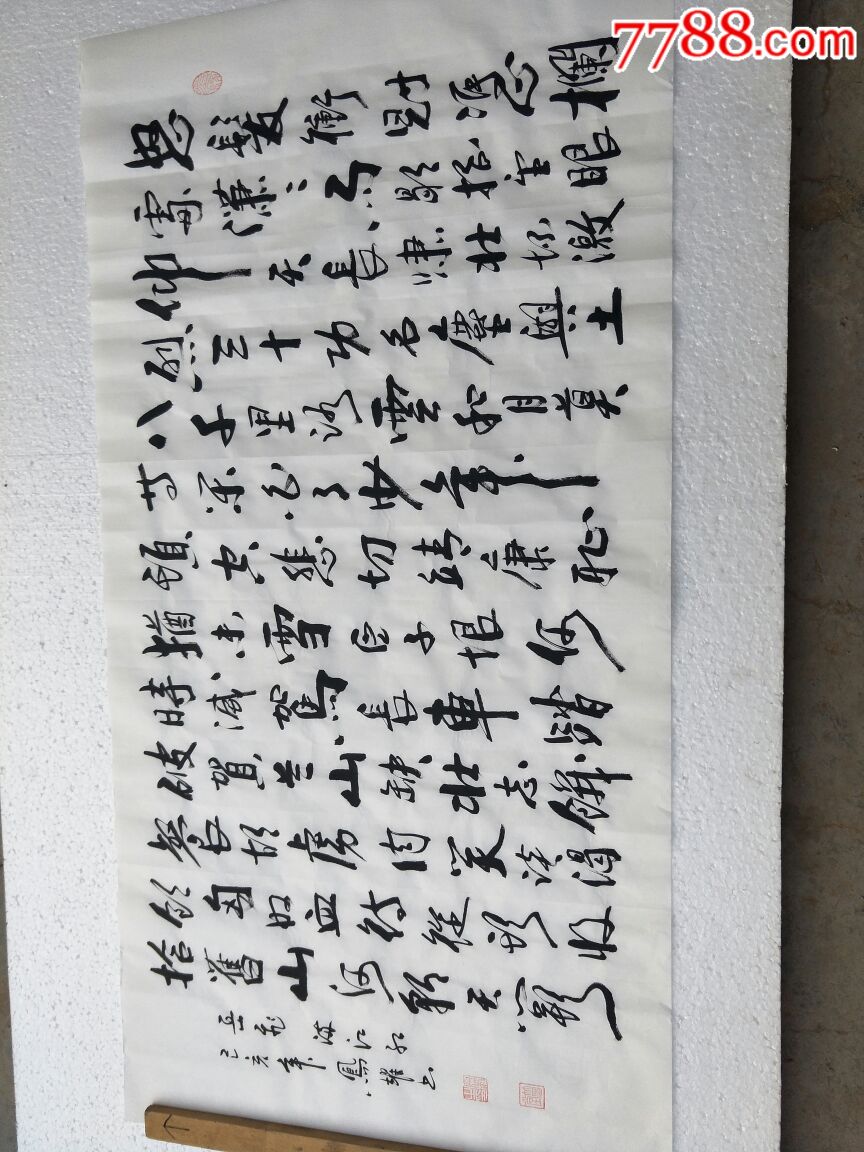 怒髮衝冠憑欄
處瀟々雨歇抬望眼
仰天長嘯壯懷激
烈三十功名塵與土
八千里路雲和月莫
等閑白了少年
頭空悲切靖康恥
猶未雪臣子恨何
時滅駕長車踏
破賀蘭山缺壯志飢
餐胡虜肉笑談渴
飲匈奴血待從頭收
拾舊山河朝天闕
岳飛滿江紅
己亥年鳳耀書
7788.com